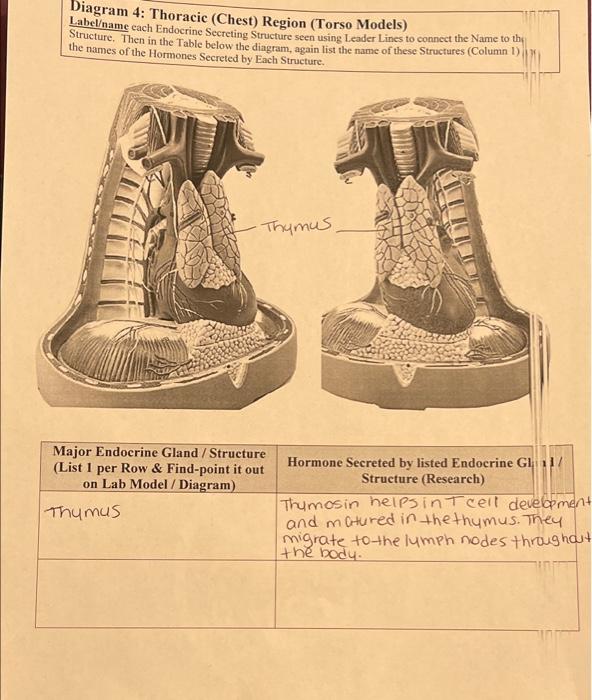 Diagram 4: Thoracic (Chest) Region (Torso Models)
Label/name each Endocrine Secreting Structure seen using Leader Lines to connect the Name to the
Structure. Then in the Table below the diagram, again list the name of these Structures (Column 1)
the names of the Hormones Secreted by Each Structure.
Thymus
Major Endocrine Gland / Structure
(List 1 per Row & Find-point it out
on Lab Model / Diagram)
Hormone Secreted by listed Endocrine Gland /
Structure (Research)
Thymus
Thymosin helps in T cell development
and matured in the thymus. They
migrate to the lymph nodes throughout
the body.